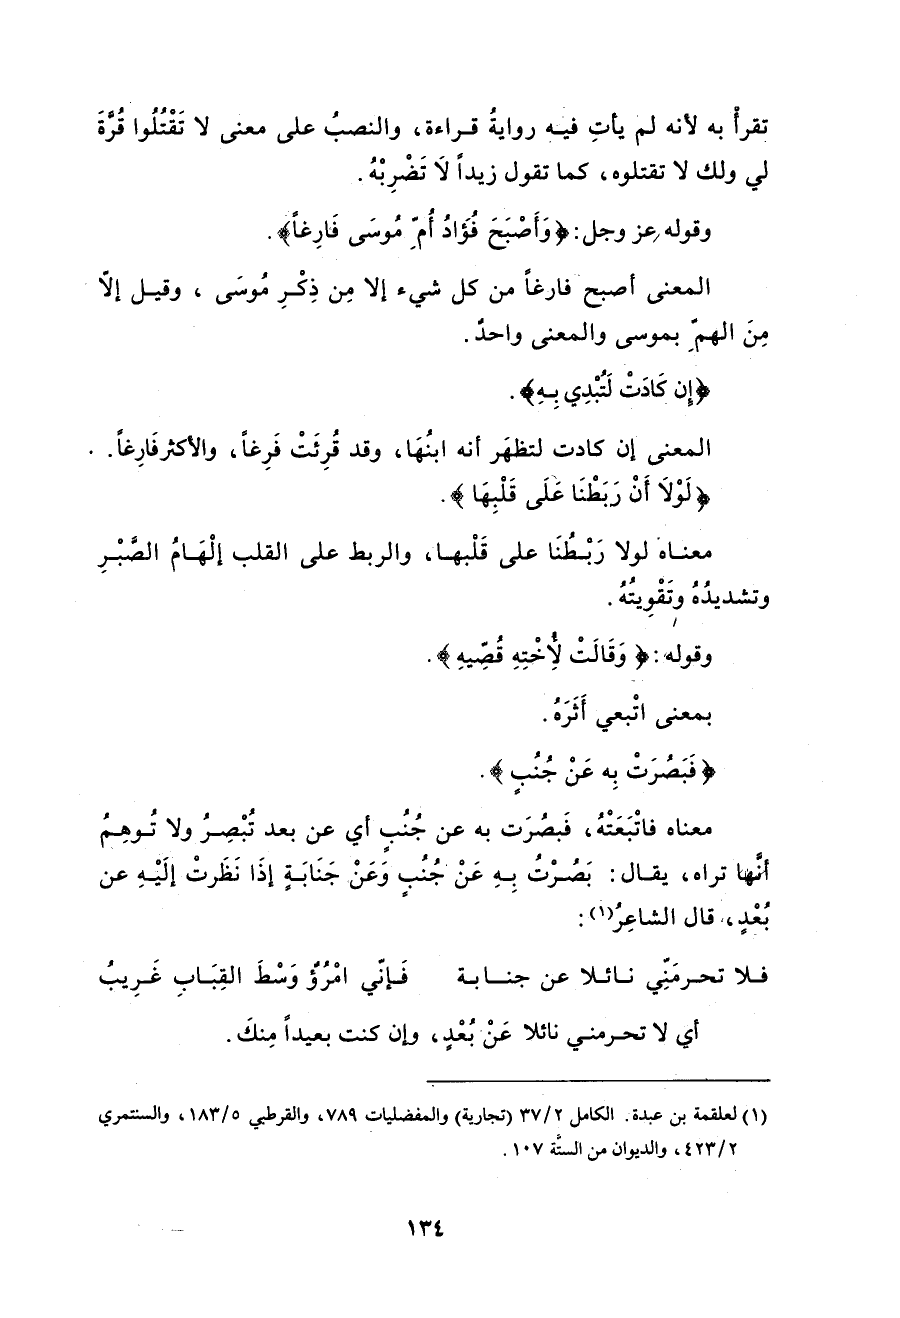 تقرأْ به لأنه لم يأتِ فيه روايةُ قراءة، والنصبُ على معنى لا تَقْتُلُوا قُرَّةَ
لي ولك لا تقتلوه، كما تقول زيداً لَا تَضْرِبْهُ.
وقوله عز وجل: ﴿وَأَصْبَحَ فُؤَادُ أُمِّ مُوسَى فَارِغاً﴾.
المعنى أصبح فارغاً من كل شيء إلا مِن ذِكْرِ مُوسَى ، وقيل إلاّ
مِنَ الهمِّ بموسى والمعنى واحدٌ.
﴿إِن كَادَتْ لَتُبْدِي بِهِ﴾.
المعنى إن كادت لتظهَر أنه ابنُهَا، وقد قُرِئَتْ فَرِغاً، والأكثر فَارِغاً.
﴿لَوْلَا أَنْ رَبَطْنَا عَلَى قَلْبِهَا﴾.
معناه لولا رَبْطُنَا على قَلْبِها، والربط على القلب إلْهَامُ الصَّبْرِ
وتشديدُهُ وتَقْوِيتُهُ.
وقوله: ﴿وَقَالَتْ لِأُخْتِهِ قُصِّيهِ﴾.
بمعنى اتْبعي أَثَرَهُ.
﴿فَبَصُرَتْ بِه عَنْ جُنُبٍ﴾.
معناه فاتْبَعَتْهُ، فَبصُرَت به عن جُنُبٍ أي عن بعد تُبْصِرُ ولا تُوهِمُ
أنَّها تراه، يقال: بَصُرْتُ بِهِ عَنْ جُنُبٍ وَعَنْ جَنَابَةٍ إذَا نَظَرتْ إلَيْهِ عن
بُعْدٍ، قال الشاعِرُ(١):
فلا تحرمَنِّي نائلا عن جنابة فَإنّي امْرُؤٌ وَسْطَ القِبَابِ غَرِيبُ
أي لا تحرمني نائلا عَنْ بُعْدٍ، وإن كنت بعيداً مِنكَ.
(١) لعلقمة بن عبدة. الكامل ٣٧/٢ (تجارية) والمفضليات ٧٨٩، والقرطبي ١٨٣/٥، والسنتمري
٤٢٣/٢، والديوان من الستَّة ١٠٧.
١٣٤